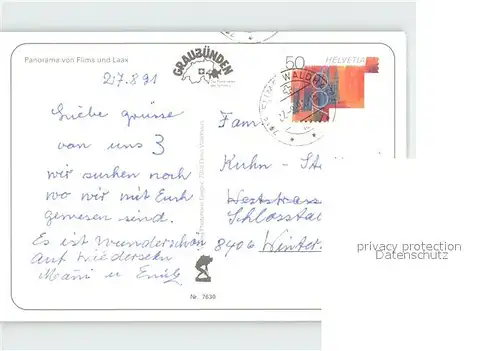 Panorama von Flims und Laax
GRAUBÜNDEN
50
HELVETIA
FLIMS WALDHAUS
27.8.91
Liebe grüsse
von uns 3
wir suchen noch
wo wir mit Euch
gewesen sind.
Es ist wunderschön
auf wiedersehn
Fam.
Kuhn - St
Weststrass
Schlosstal
8406 Winter.
privacy protection
Datenschutz
Nr. 7636